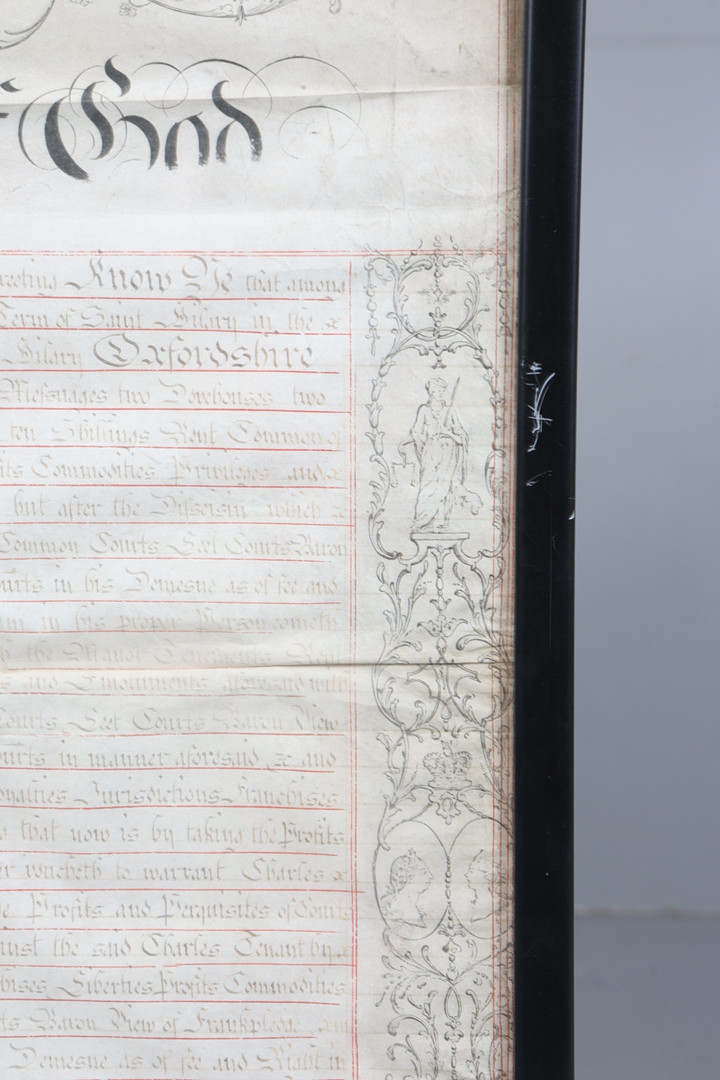 God
reeting Know Ye that among
Term of Saint Hilary in the &
Hilary Oxfordshire
Messuages two Dovehouses two
ten Shillings Rent Common of
its Commodities Privileges and &
but after the Disseisin which &
Common Courts Leet Courts Baron
ourts in his Demesne as of fee and
in his proper Person cometh
the Manor Tenements Rent
s and Emoluments aforesaid with
Courts Leet Courts Baron View
ourts in manner aforesaid &c and
oyalties Jurisdictions Franchises
that now is by taking the Profits
er voucheth to warrant Charles &
e Profits and Perquisites of Courts
inst the said Charles Tenant by &
hises Liberties Profits Commodities
ts Baron View of Frankpledge
Demesne as of fee and Right in